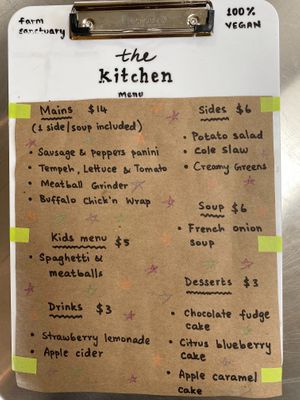 farm
sanctuary
100%
VEGAN
the
kitchen
menu
Mains $14
(1 side/soup included)
• Sausage & peppers panini
• Tempeh, Lettuce & Tomato
• Meatball Grinder
• Buffalo Chick'n Wrap
Kids menu $5
• Spaghetti &
meatballs
Drinks $3
• Strawberry lemonade
• Apple cider
Sides $6
• Potato salad
• Cole slaw
• Creamy Greens
Soup $6
• French onion
soup
Desserts $3
• Chocolate fudge
cake
• Citrus blueberry
cake
• Apple caramel
cake